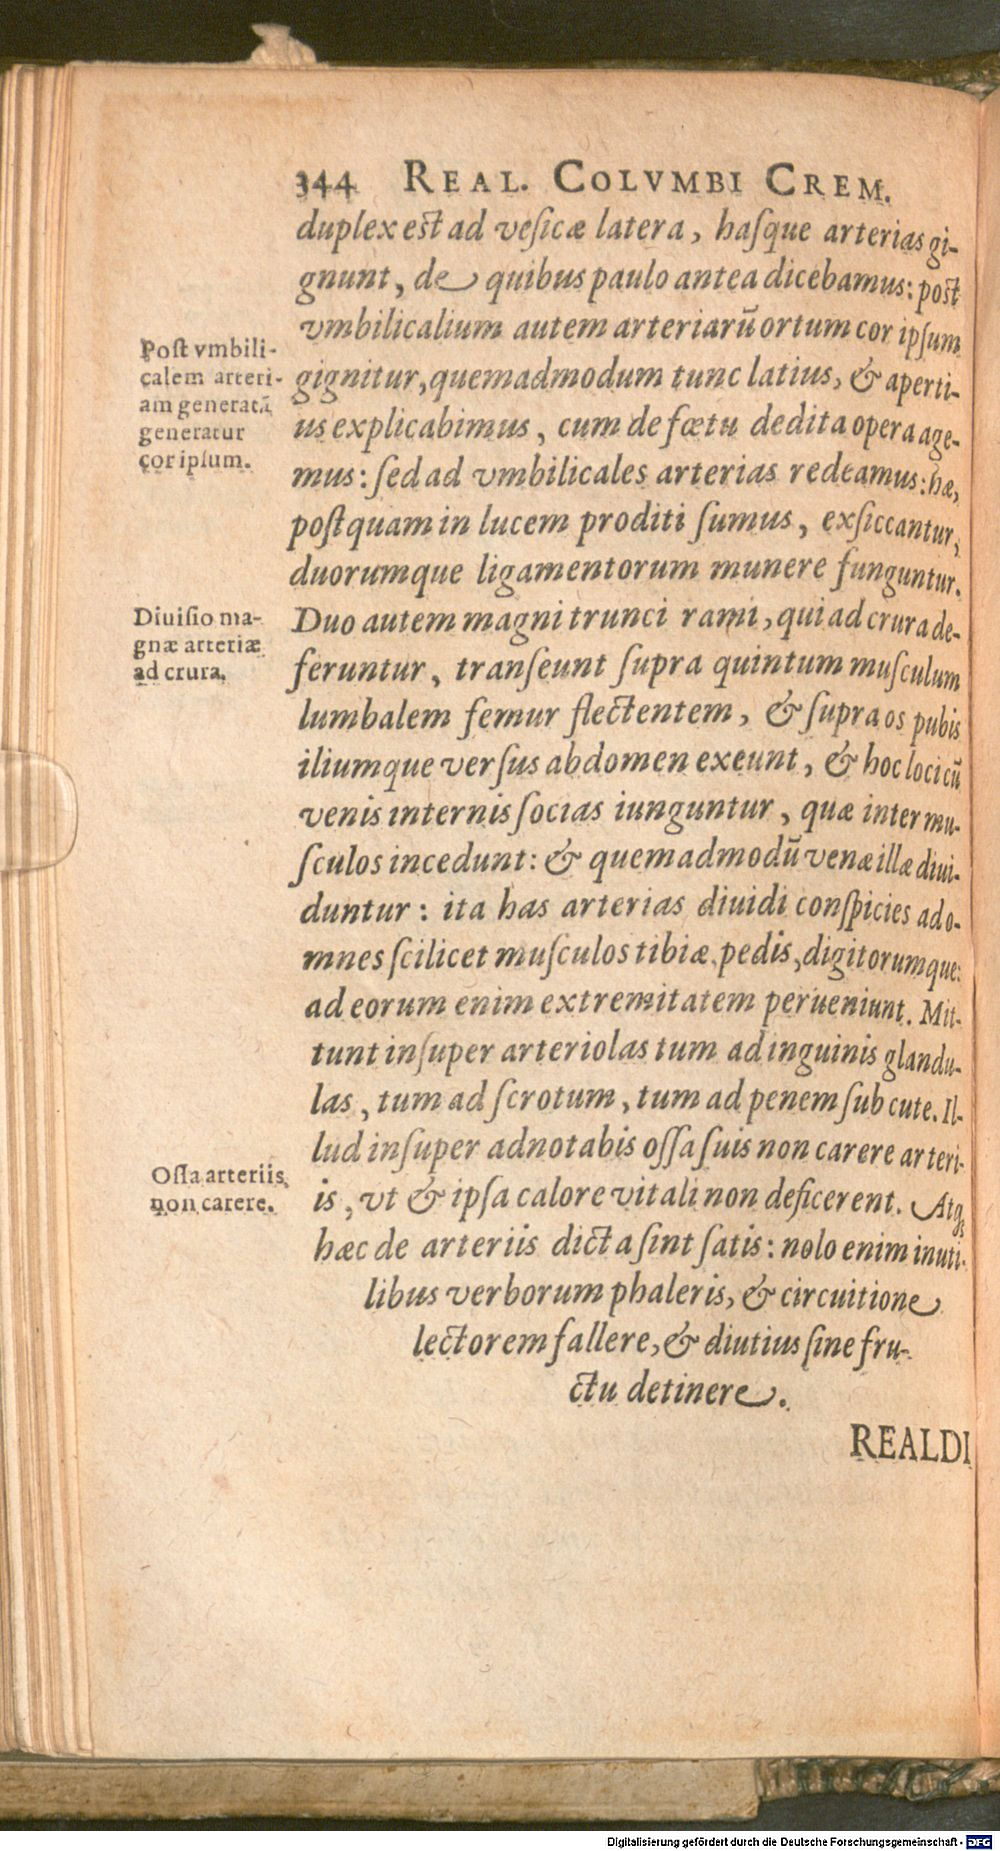 344 REAL. COLVMBI CREM.
duplex est ad vesicæ latera, hasque arterias gi-
gnunt, de quibus paulo antea dicebamus: post
vmbilicalium autem arteriarū ortum cor ipsum
gignitur, quemadmodum tunc latius, & aperti-
us explicabimus, cum de fœtu dedita opera age-
mus: sed ad vmbilicales arterias redeamus: hæ,
postquam in lucem proditi sumus, exsiccantur,
duorumque ligamentorum munere funguntur.
Duo autem magni trunci rami, qui ad crura de-
feruntur, transeunt supra quintum musculum
lumbalem femur flectentem, & supra os pubis
iliumque versus abdomen exeunt, & hoc loci cū
venis internis socias iunguntur, quæ inter mu-
sculos incedunt: & quemadmodū venæ illæ diui-
duntur: ita has arterias diuidi conspicies ad o-
mnes scilicet musculos tibiæ, pedis, digitorumque:
ad eorum enim extremitatem perueniunt. Mit-
tunt insuper arteriolas tum ad inguinis glandu-
las, tum ad scrotum, tum ad penem sub cute. Il-
lud insuper adnotabis ossa suis non carere arteri-
is, vt & ipsa calore vitali non deficerent. Atq;
hæc de arteriis dicta sint satis: nolo enim inuti-
libus verborum phaleris, & circuitione
lectorem fallere, & diutius sine fru-
ctu detinere.
REALDI
Post vmbili-
calem arteri-
am generatā
generatur
cor ipsum.
Diuisio ma-
gnæ arteriæ
ad crura.
Ossa arteriis
non carere.
Digitalisierung gefördert durch die Deutsche Forschungsgemeinschaft - DFG